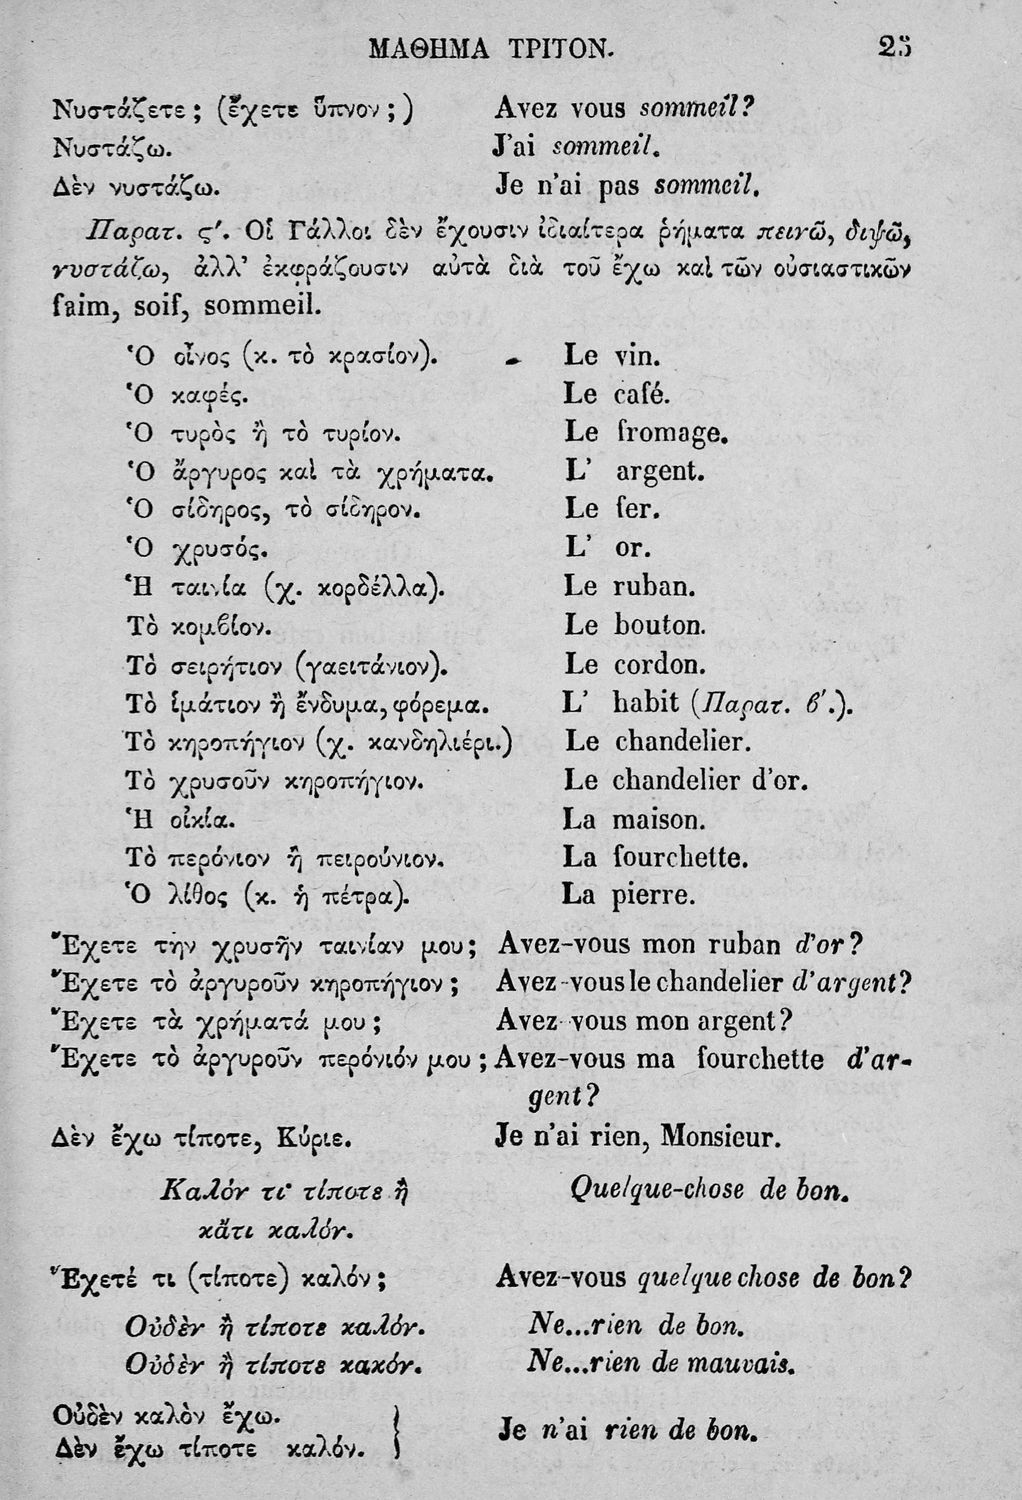 ΜΑΘΗΜΑ ΤΡΙΤΟΝ. 25
Νυστάζετε; (ἔχετε ὕπνον;) Avez vous sommeil?
Νυστάζω. J'ai sommeil.
Δὲν νυστάζω. Je n'ai pas sommeil.
Παρατ. ς'. Οἱ Γάλλοι δὲν ἔχουσιν ἰδιαίτερα ῥήματα πεινῶ, διψῶ,
νυστάζω, ἀλλ' ἐκφράζουσιν αὐτὰ διὰ τοῦ ἔχω καὶ τῶν οὐσιαστικῶν
faim, soif, sommeil.
Ὁ οἶνος (κ. τὸ κρασίον). Le vin.
Ὁ καφές. Le café.
Ὁ τυρὸς ἢ τὸ τυρίον. Le fromage.
Ὁ ἄργυρος καὶ τὰ χρήματα. L' argent.
Ὁ σίδηρος, τὸ σίδηρον. Le fer.
Ὁ χρυσός. L' or.
Ἡ ταινία (χ. κορδέλλα). Le ruban.
Τὸ κομβίον. Le bouton.
Τὸ σειρήτιον (γαειτάνιον). Le cordon.
Τὸ ἱμάτιον ἢ ἔνδυμα, φόρεμα. L' habit (Παρατ. β'.).
Τὸ κηροπήγιον (χ. κανδηλιέρι.) Le chandelier.
Τὸ χρυσοῦν κηροπήγιον. Le chandelier d'or.
Ἡ οἰκία. La maison.
Τὸ περόνιον ἢ πειρούνιον. La fourchette.
Ὁ λίθος (κ. ἡ πέτρα). La pierre.
Ἔχετε τὴν χρυσῆν ταινίαν μου; Avez-vous mon ruban d'or?
Ἔχετε τὸ ἀργυροῦν κηροπήγιον; Avez-vous le chandelier d'argent?
Ἔχετε τὰ χρήματά μου; Avez-vous mon argent?
Ἔχετε τὸ ἀργυροῦν περόνιόν μου; Avez-vous ma fourchette d'ar-
gent?
Δὲν ἔχω τίποτε, Κύριε. Je n'ai rien, Monsieur.
Καλόν τι· τίποτε ἢ Quelque-chose de bon.
κᾄτι καλόν.
Ἔχετέ τι (τίποτε) καλόν; Avez-vous quelque chose de bon?
Οὐδὲν ἢ τίποτε καλόν. Ne...rien de bon.
Οὐδὲν ἢ τίποτε κακόν. Ne...rien de mauvais.
Οὐδὲν καλὸν ἔχω.
Δὲν ἔχω τίποτε καλόν. } Je n'ai rien de bon.